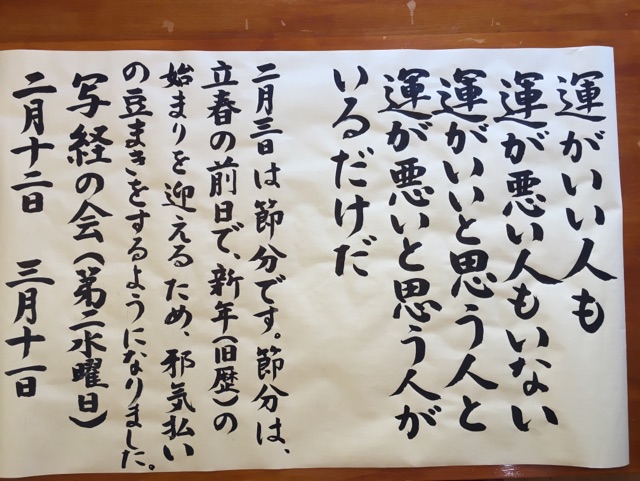 運がいい人も
運が悪い人もいない
運がいいと思う人と
運が悪いと思う人が
いるだけだ
二月三日は節分です。節分は、
立春の前日で、新年(旧歴)の
始まりを迎えるため、邪気払い
の豆まきをするようになりました。
写経の会(第二水曜日)
二月十二日 三月十一日